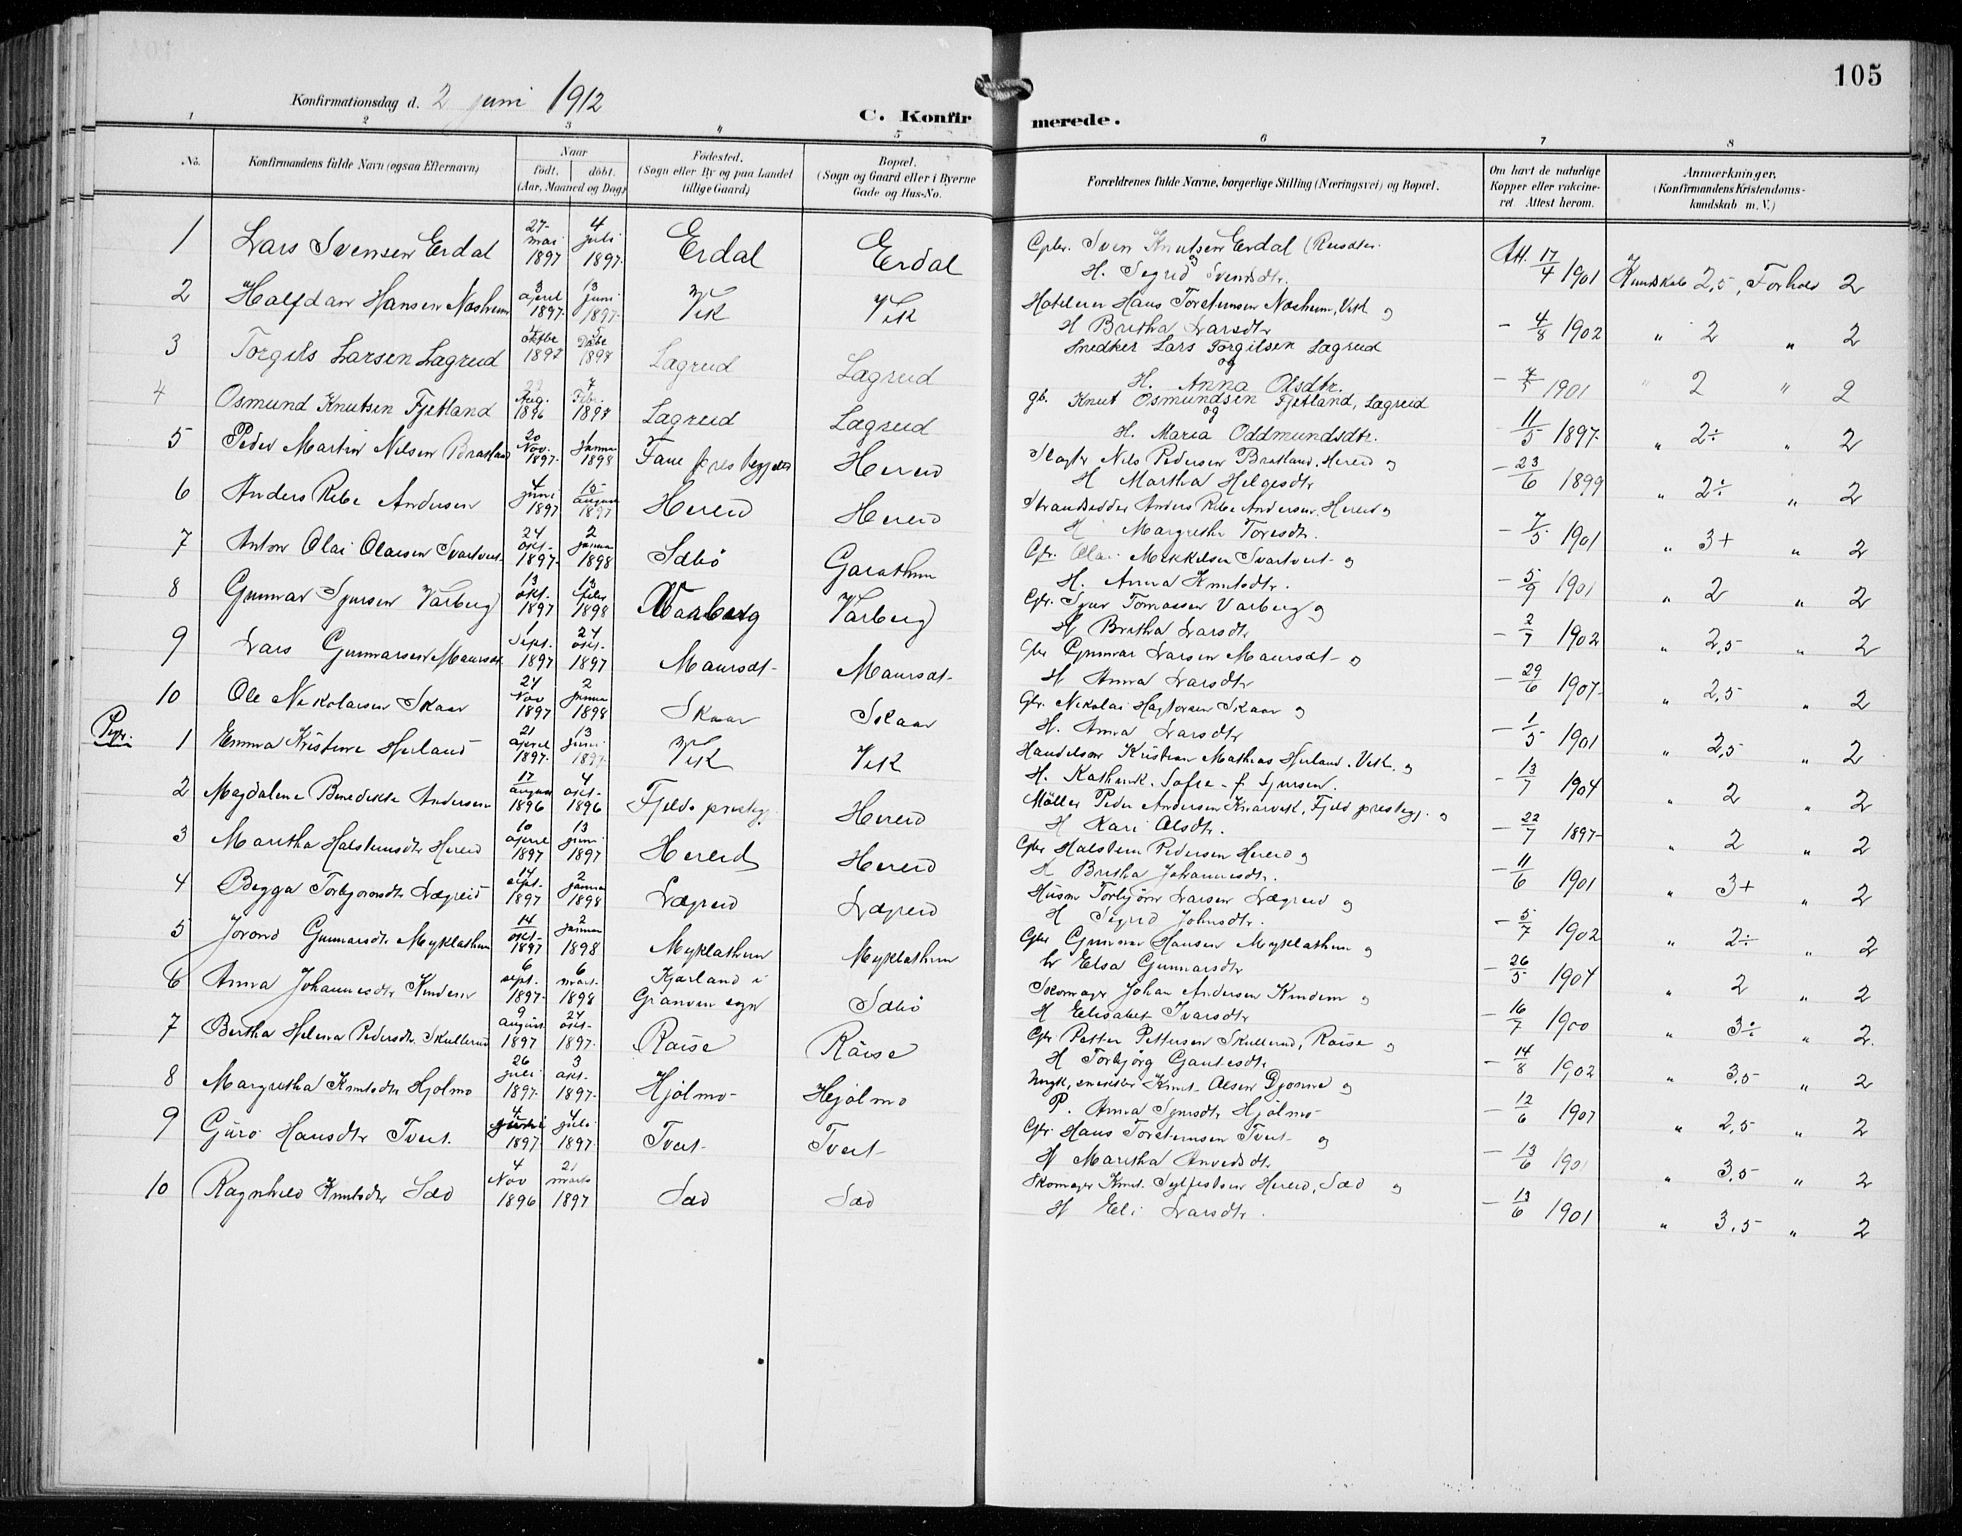 105
Konfirmationsdag d. 2 juni 1912
C. Konfirmerede.
1 2 3 4 5 6 7 8
No.
Konfirmandens fulde Navn (ogsaa Efternavn)
Naar
født. døbt.
(Aar, Maaned og Dag)
Fødested.
(Sogn eller By og paa Landet
tillige Gaard)
Bopæl.
(Sogn og Gaard eller i Byerne
Gade og Hus-No.
Forældrenes fulde Navne, borgerlige Stilling (Næringsvei) og Bopæl.
Om havt de naturlige
Kopper eller vakcine-
ret Attest herom.
Anmærkninger.
(Konfirmandens Kristendoms-
kundskab m. V.)
1 Lars Svensen Erdal 27 mai 1897 4 juli 1897 Erdal Erdal
Gbr. Sven Knutsen Erdal og
H. Segred Svendsdtr. Att. 17/4 1901 Kundskab 2,5, Forhold 2
2 Halfdan Hansen Næsheim 3 april 1897 13 juni 1897 Vik Vik
Hans Torsteinsen Næsheim, Vik og
H Britha Larsdtr - 4/8 1902 " 2 " 2
3 Torgils Larsen Lægreid 1897 Lægreid Lægreid
Snedker Lars Torgilsen Lægreid
og
H. Anna Olsdtr. 1901 " 2 " 2
4 Osmund Knutsen Fjetland Aug. 1896 7 Febr. 1898 Lægreid Lægreid
gb. Knut Osmundsen Fjetland, Lægreid
og
H. Maria Oddmundsdtr. - 11/5 1897 " 2÷ " 2
5 Peder Martin Nilsen Bratland 20 Nov. 1897 1 Janua 1898 Fane prestegjeld Hereid
Slagter Nils Pedersen Bratland, Hereid og
H Martha Helgesdtr - 23/6 1899 " 2÷ " 2
6 Anders Andersen 4 juni 1897 15 august 1897 Hereid Hereid
Strandsidder Anders Andersen, Hereid og
H Margretha Toresdtr. - 7/5 1901 " 3+ " 2
7 Anton Olai Olaisen Svartveit 24 okt. 1897 2 Janua 1898 Sæbø Garathun
Gbr. Olai Mikkelsen Svartveit og
H. Anna Knutsdtr. - 5/9 1901 " 2 " 2
8 Gunnar Sjursen Varberg 13 okt. 1897 13 febr 1898 Vaarberg Varberg
Gbr. Sjur Tomassen Varberg og
H Britha Larsdtr - 2/7 1902 " 2,5 " 2
9 Lars Gunnarsen Maursæt 1 sept. 1897 24 okt. 1897 Maursæt Maursæt
Gbr Gunnar Larsen Maursæt og
H Anna Larsdtr - 29/6 1907 " 2,5 " 2
10 Ole Nikolaisen Skaar 24 Nov 1897 2 Janua 1898 Skaar Skaar
Gbr. Nikolai Skaar og
H. Anna Larsdtr - 1/5 1901 " 2,5 " 2
Piger.
1 Emma Kristine Herland 21 april 1897 13 juni 1897 Vik Vik
Handelsm Kristian Mathias Herland, Vik, og
H. Kathrink. Sofie f. Sjursen. - 13/7 1904 " 2 " 2
2 Magdalene Benedikte Andersen 17 august 1896 4 okt. 1896 Fjelds presteg. Hereid
Møller Peder Andersen Knarvik, Fjeld presteg. og
H Kari Olsdtr. - 22/7 1897 " 2 " 2
3 Maritha Halsteinsdtr Hereid 10 april 1897 13 juni 1897 Hereid Hereid
Gbr Halstein Pedersen Hereid og
H Britha Johannesdtr. - 11/6 1901 " 3+ " 2
4 Begga Torbjørnsdtr Lægreid 14 sept. 1897 2 Janua 1898 Lægreid Lægreid
Husm Torbjørn Larsen Lægreid og
H Segred Johnsdtr. - 5/7 1902 " 2÷ " 2
5 Jorond Gunnarsdtr Myklathun 14 okt. 1897 2 januar 1898 Myklathun Myklathun
Gbr Gunnar Hansen Myklathun og
H Elsa Gunnarsdtr - 26/5 1904 " 2 " 2
6 Anna Johannesdtr Kindem 6 sept. 1897 6 mart. 1898 Kjærland i Granvin sogn Sæbø
Skomager Johan Andersen Kindem og
H Elisabet Ivarsdtr - 16/7 1900 " 3÷ " 2.
7 Bertha Helena Pedersdtr. Skullerud 9 august 1897 24 okt. 1897 Røise Røise
Gbr Petter Pettersen Skullerud, Røise og
H Torbjørg Gautesdtr - 14/8 1902 " 3,5 " 2
8 Margretha Knutsdtr Hjølmo 26 juli 1897 3 okt. 1897 Hjølmo Hjølmo
Ungk. snedker Knut Olsen Gjønne og
P. Anna Sjursdtr Hjølmo - 12/6 1907 " 2,5 " 2
9 Guro Hansdtr Tveit. 4 1897 4 juli 1897 Tveit Tveit
Gbr. Hans Torsteinsen Tveit og
H Maritha - 13/6 1901 " 3,5 " 2
10 Ragnhild Knutsdtr Sæd 4 Nov 1896 21 marts 1897 Sæd Sæd
Skomager Knut Hereid, Sæd og
H Eli Larsdtr. - 13/6 1901 " 3,5 " 2